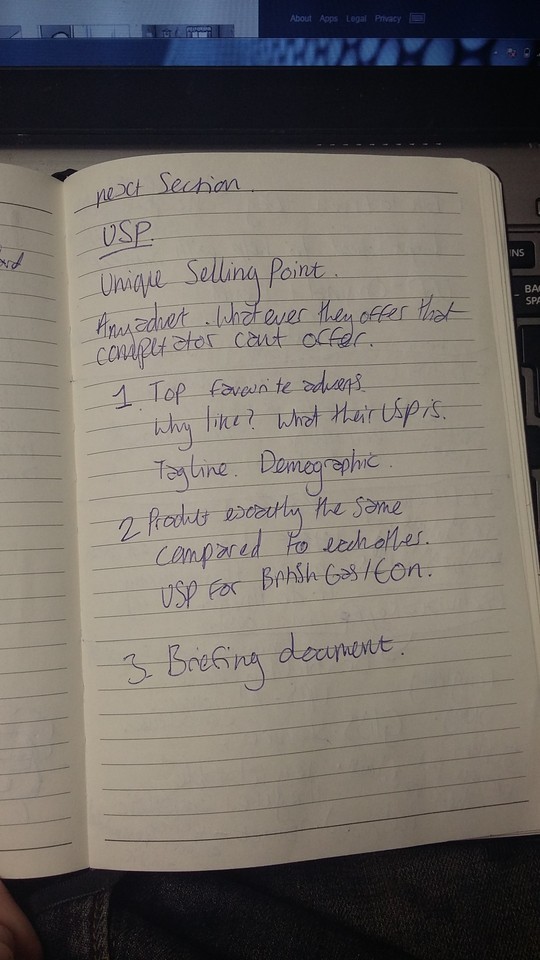 About Apps Legal Privacy
next Section.
USP.
Unique Selling Point.
Any advert. Whatever they offer that
competators cant offer.
1. Top favourite adverts.
Why like? What their USP is.
Tagline. Demographic.
2 Products exactly the same
compared to eachother.
USP For British Gas/Eon.
3 Briefing document.
INS
BAC
SPA